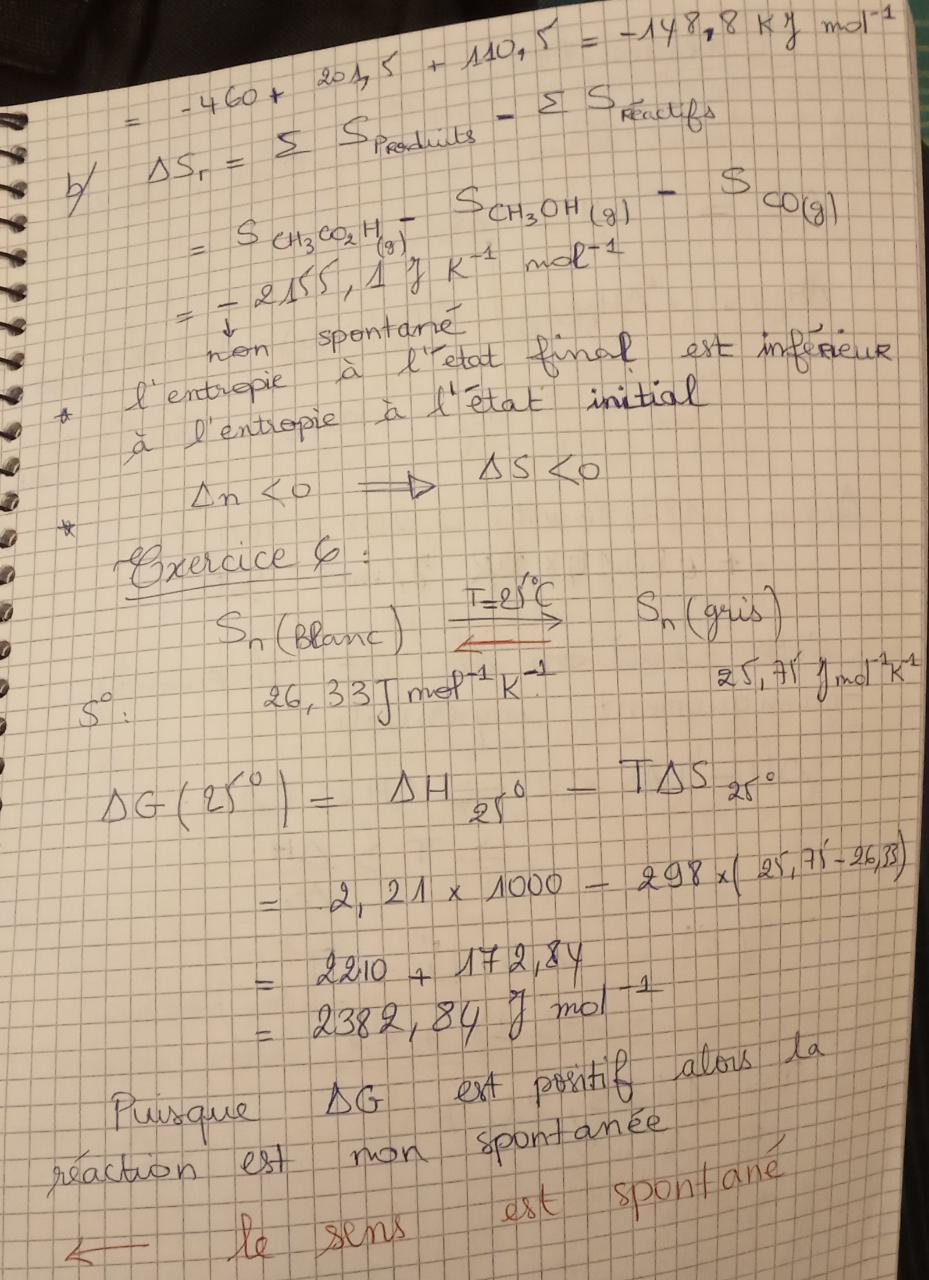 = -460 + 201,5 + 110,5 = -148,8 KJ mol⁻¹
b/ ΔSr = Σ SProduits - Σ Sréactifs
= S CH3CO2H(g) - S CH3OH(g) - S CO(g)
= - 2155,1 J K⁻¹ mol⁻¹
↓
non spontané
* l'entropie à l'état final est inférieur
à l'entropie à l'état initial
* Δn <0 ⟹ ΔS <0
Exercice 6 :
Sn (Blanc) T=25°C Sn (gris)
S° : 26,33 J mol⁻¹ K⁻¹ 25,75 J mol⁻¹ K⁻¹
ΔG (25°) = ΔH 25° - TΔS 25°
= 2,21 × 1000 - 298 × ( 25,75 - 26,33)
= 2210 + 172,84
= 2382,84 J mol⁻¹
Puisque ΔG est positif alors la
réaction est non spontanée
← le sens est spontané